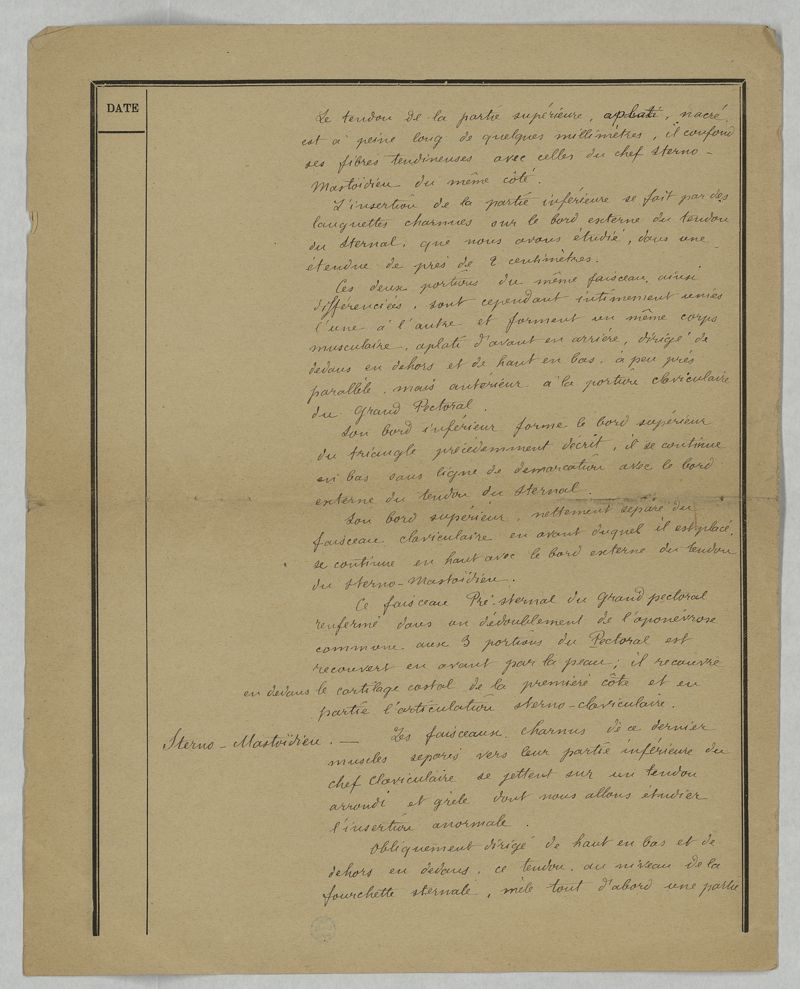 DATE
Le tendon de la partie supérieure, aplati, nacré
est à peine long de quelques millimètres, il confond
ses fibres tendineuses avec celles du chef Sterno-
Mastoïdien du même côté.
L'insertion de la partie inférieure se fait par des
languettes charnues sur le bord externe du tendon
du Sternal, que nous avons étudié, dans une
étendue de près de 2 centimètres.
Ces deux portions du même faisceau, ainsi
différenciées, sont cependant intimement unies
l'une à l'autre et forment un même corps
musculaire, aplati d'avant en arrière, dirigé de
dedans en dehors et de haut en bas, à peu près
parallèle, mais antérieur à la portion claviculaire
du Grand Pectoral.
Son bord inférieur forme le bord supérieur
du triangle précédemment décrit, il se continue
en bas sans ligne de démarcation avec le bord
externe du tendon du Sternal.
Son bord supérieur, nettement séparé du
faisceau claviculaire en avant duquel il est placé,
se continue en haut avec le bord externe du tendon
du Sterno-Mastoïdien.
Ce faisceau Pré-sternal du Grand pectoral
renfermé dans un dédoublement de l'aponévrose
commune aux 3 portions du Pectoral est
recouvert en avant par la peau; il recouvre
en dedans le cartilage costal de la première côte et en
partie l'articulation sterno-claviculaire.
Sterno-Mastoïdien. — Les faisceaux charnus de ce dernier
muscles séparés vers leur partie inférieure du
chef claviculaire se jettent sur un tendon
arrondi et grêle dont nous allons étudier
l'insertion anormale.
Obliquement dirigé de haut en bas et de
dehors en dedans, ce tendon, au niveau de la
fourchette sternale, mêle tout d'abord une partie